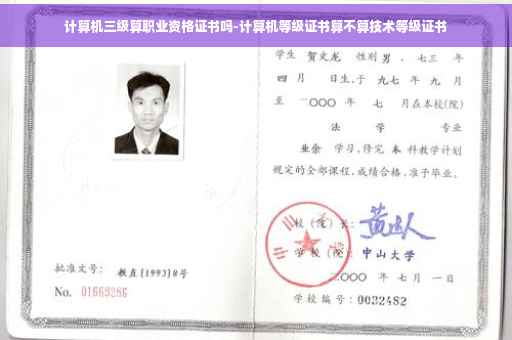 计算机三级算职业资格证书吗-计算机等级证书算不算技术等级证书
学生 贺文龙 性别 男 、七三 年
四 月 日生,于 九七 年 九 月
至 二〇〇〇 年 七 月在本校(院)
法 学 专业
业余 学习,修完 本 科教学计划
规定的全部课程,成绩合格,准予毕业。
校(院)长:
学 校(院): 中山大学
二〇〇〇 年 七 月 一 日
学校编号: 0032482
批准文号: 教直[1993]8号
No. 01669286